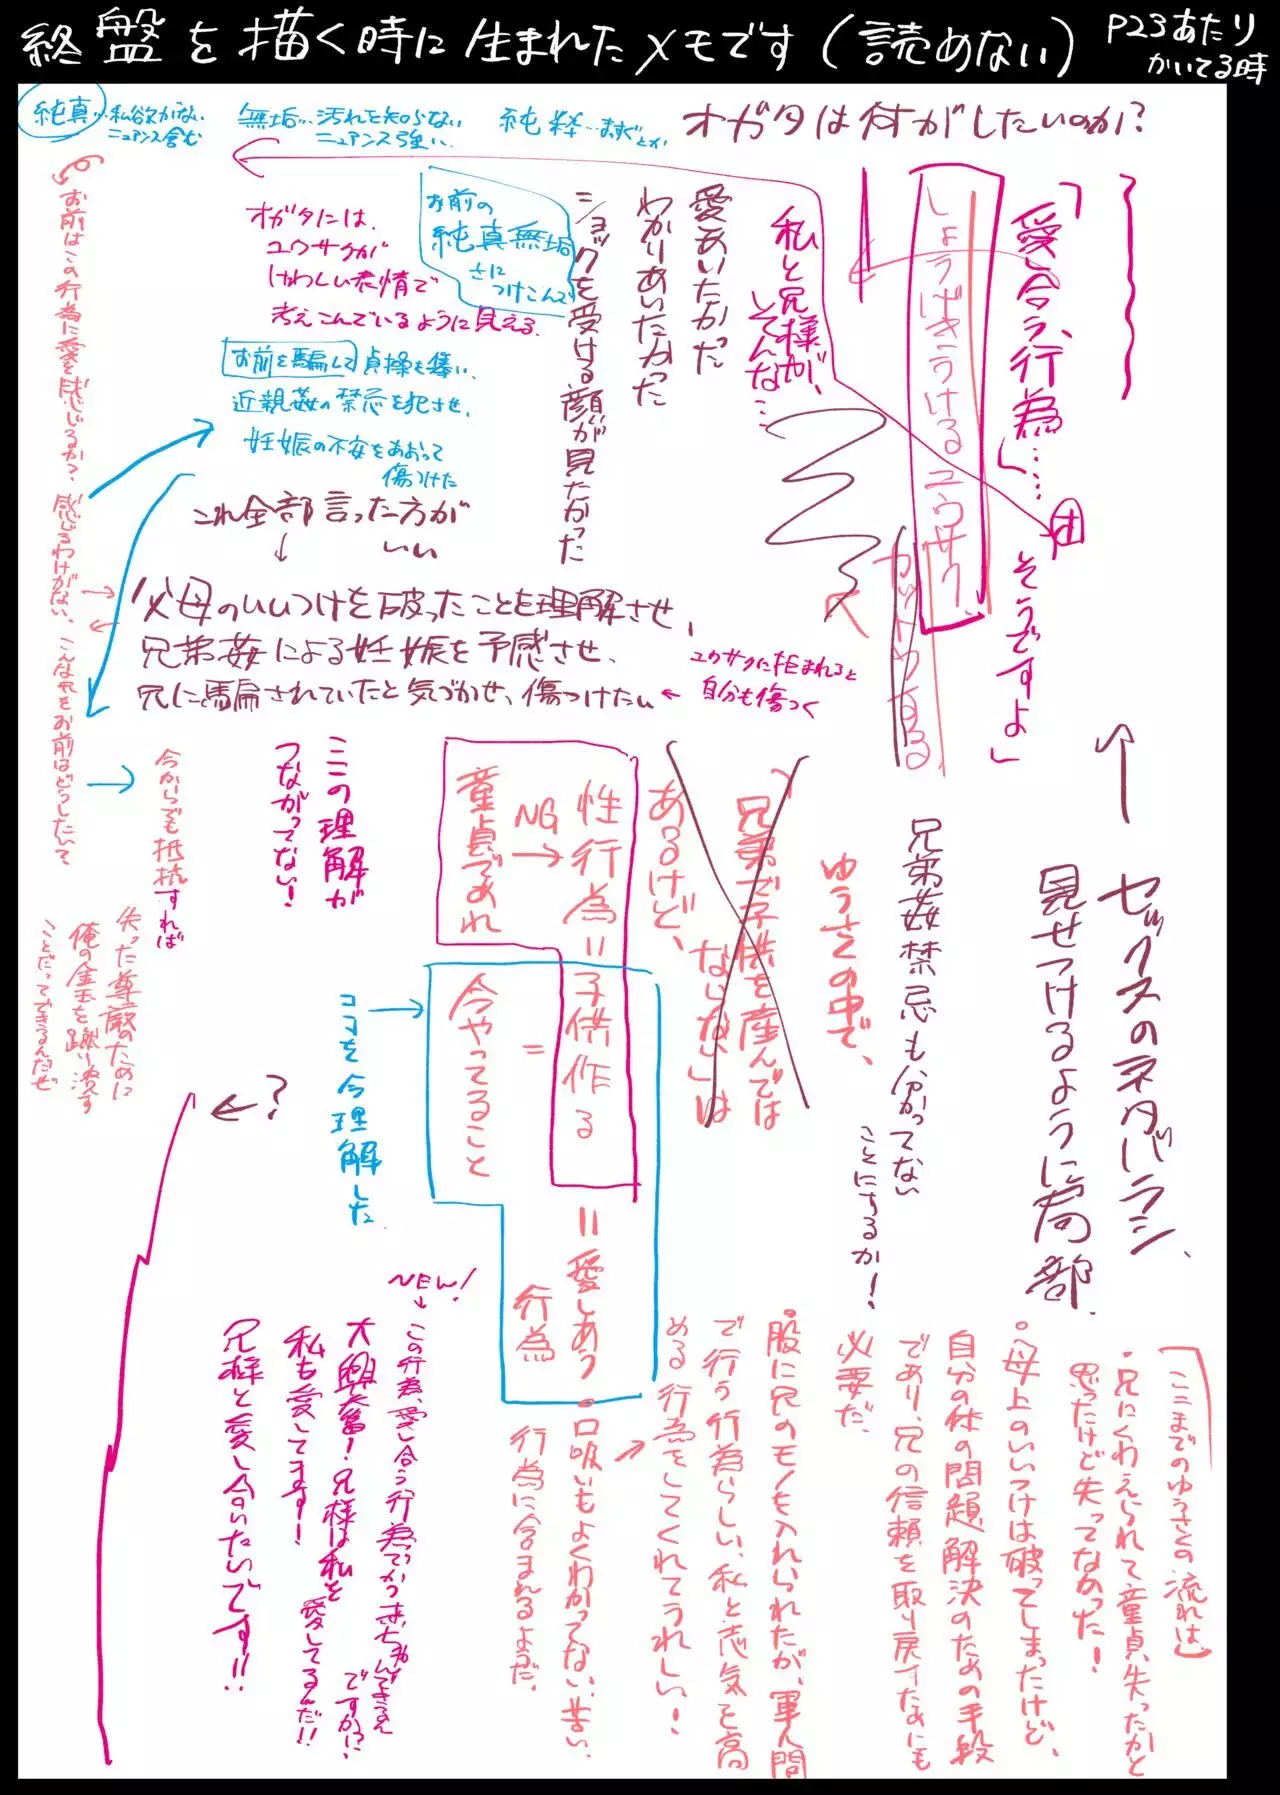 終盤を描く時に生まれたメモです(読めない)
P23あたり
かいてる時
純真…私欲がない
ニュアンス含む
無垢…汚れを知らない
ニュアンス強い
純粋…まっすぐとか
オガタは何がしたいのか?
「愛し合う、行為」……
そうですよ」
しょうげきうけるユウサク
カットする
私と兄様が、
そんな…
愛しあいたかった
わかりあいたかった
ショックを受ける顔が見たかった
お前の
純真無垢
さに
つけこんで
オガタには、
ユウサクが
けわしい表情で
考えこんでいるように見える
お前を騙して貞操を奪い、
近親姦の禁忌を犯させ、
妊娠の不安をあおって
傷つけた
これ全部言った方が
いい
父母のいいつけを破ったことを理解させ、
兄弟姦による妊娠を予感させ、
兄に騙されていたと気づかせ、傷つけたい
ユウサクに拒まれると
自分も傷つく
お前はこの行為に愛を感じるか?感じるわけがない、こんな兄をお前はどうしたい
今からでも抵抗すれば
失った尊厳のために
俺の金玉を蹴り潰す
ことだってできるんだぜ
セックスのネタバラシ、
見せつけるように局部
兄弟姦禁忌も分かってない
ことにするか!
ゆうさくの中で、
「兄弟で子供を産んでは
ならない」は
あるけど、
性行為=子供作る
=愛しあう
行為
NG
童貞であれ
=
今やってること
ここの理解が
つながってない!
ココを今理解した
?
(ここまでのゆうさくの流れは)
・兄にくわえられて童貞失ったかと
思ったけど失ってなかった!
・母上のいいつけは破ってしまったけど、
自分の体の問題解決のための手段
であり、兄の信頼を取り戻すためにも
必要だ
・股に兄のモノを入れられたが、軍人間
で行う行為らしい、私と志気を高
める行為をしてくれてうれしい!
・口吸いもよくわかってない、苦い、
行為に含まれるようだ、
NEW!
この行為、愛し合う行為でかつ赤ちゃんできるん
ですか!?、
大興奮!兄様は私を
愛してるんだ!!
私も愛してます!
兄様と愛し合いたいです!!